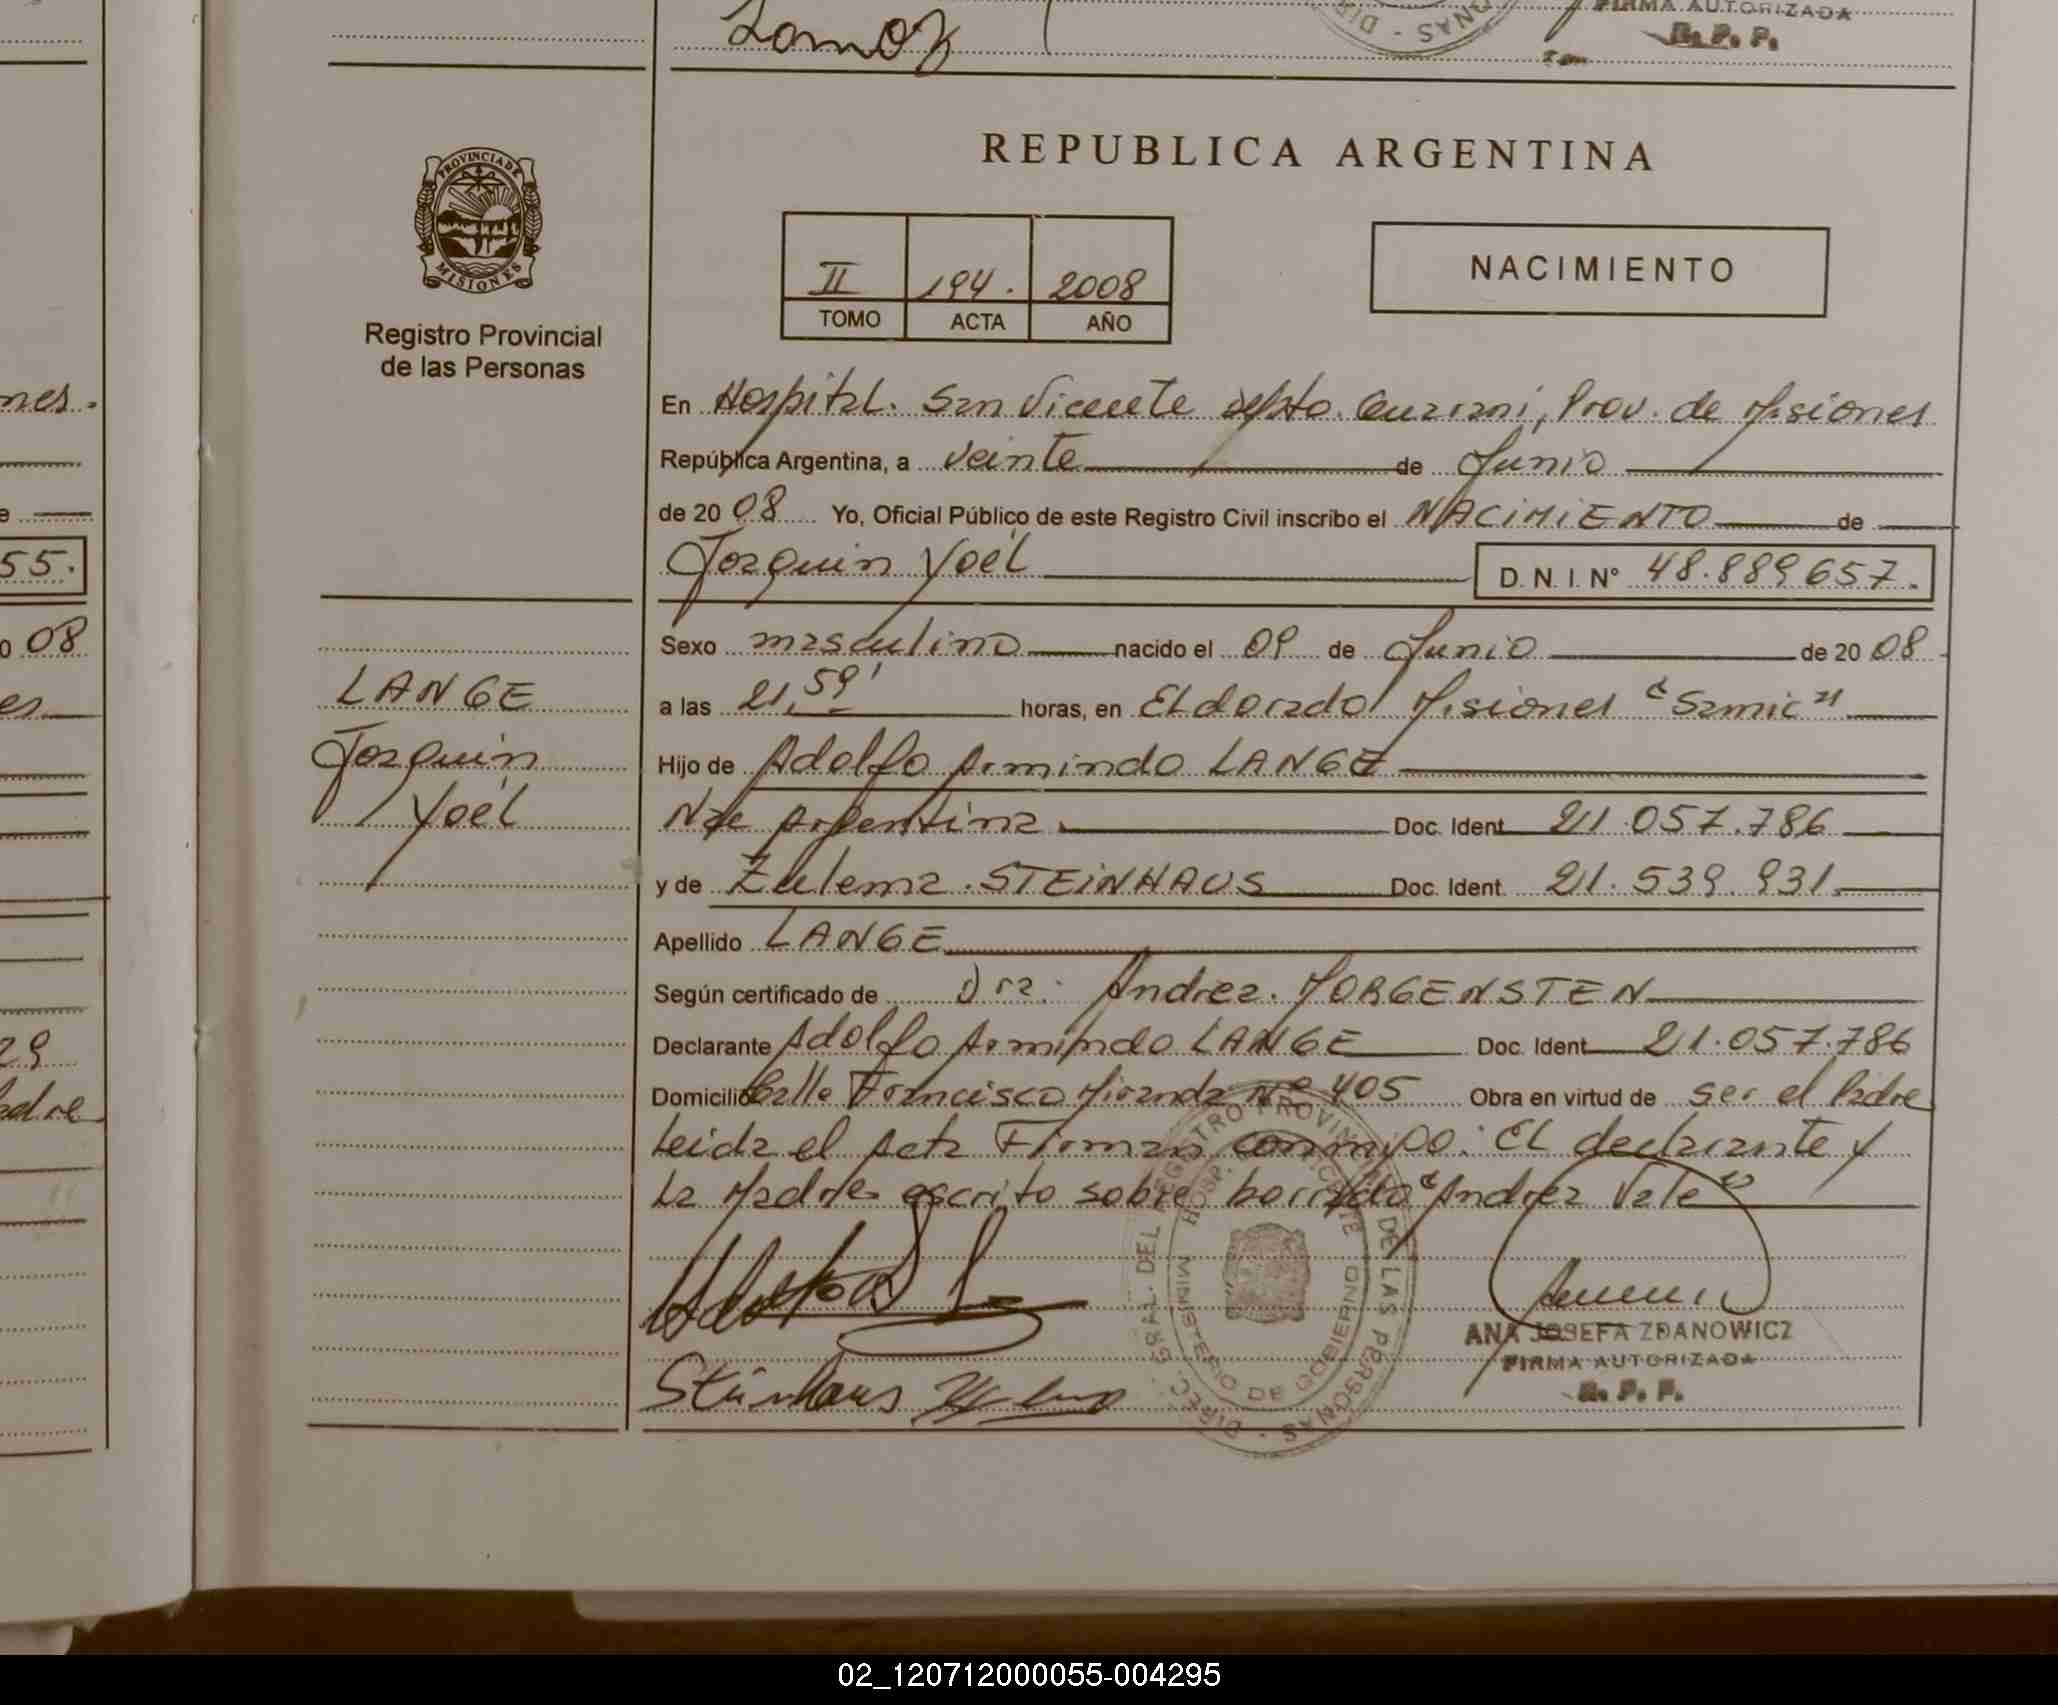 Lomoz
DIREC
ONAS
FIRMA AUTORIZADA
R. P. P.
nes.
55.
o 08
es
29
adre
PROVINCIA DE
MISIONES
Registro Provincial
de las Personas
LANGE
Joaquin
Yoél
REPUBLICA ARGENTINA
II 194. 2008
TOMO ACTA AÑO
NACIMIENTO
En Hospital. San Vicente Depto. Guarani, Prov. de Misiones
República Argentina, a Veinte de Junio
de 20 08 Yo, Oficial Público de este Registro Civil inscribo el NACIMIENTO de
Joaquin Yoél D. N. I. Nº 48.889657.
Sexo masculino nacido el 09 de Junio de 20 08
a las 21,59' horas, en Eldorado Misiones "Samic"
Hijo de Adolfo Armindo LANGE
Nac Argentina. Doc. Ident. 21.057.786
y de Zulema. STEINHAUS Doc. Ident. 21.539.931.
Apellido LANGE
Según certificado de Dra. Andrea. MORGENSTEN
Declarante Adolfo Armindo LANGE Doc. Ident. 21.057.786
Domicilio Calle Francisco Miranda Nº 405 Obra en virtud de ser el Padre
Leida el Acta Firman conmigo: El declarante y
La Madre escrito sobre borrado "Andrea Vale"
DIREC. GRAL. DEL REGISTRO PROVINCIAL DE LAS PERSONAS
HOSP. SAN VICENTE
MINISTERIO DE GOBIERNO
Steinhaus
ANA JOSEFA ZDANOWICZ
FIRMA AUTORIZADA
R. P. P.
02_120712000055-004295